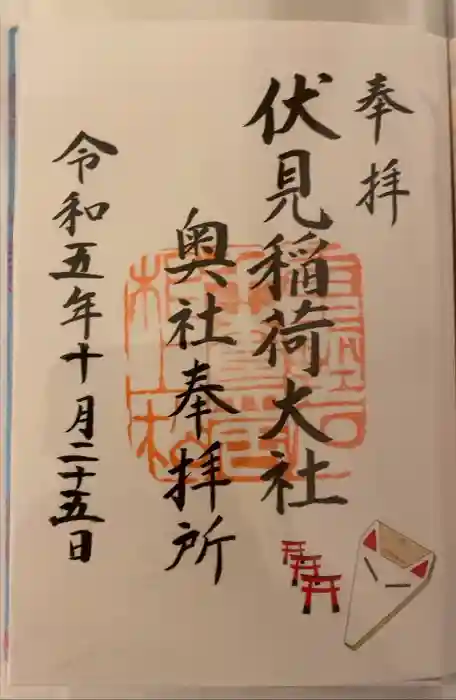 奉拝
伏見稲荷大社
奥社奉拝所
令和五年十月二十五日